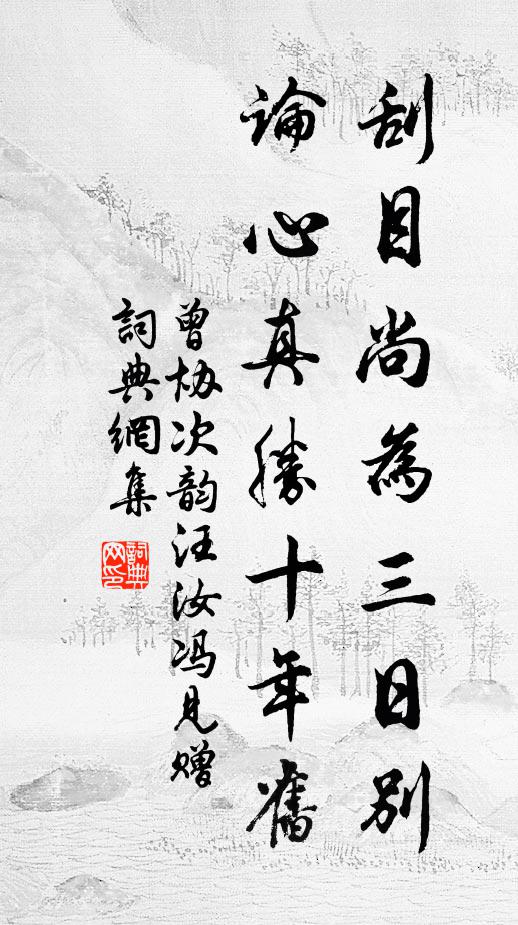 刮目尚為三日別
論心真勝十年舊
曾协次韵汪汝冯见赠
詞典網集
詞典网印